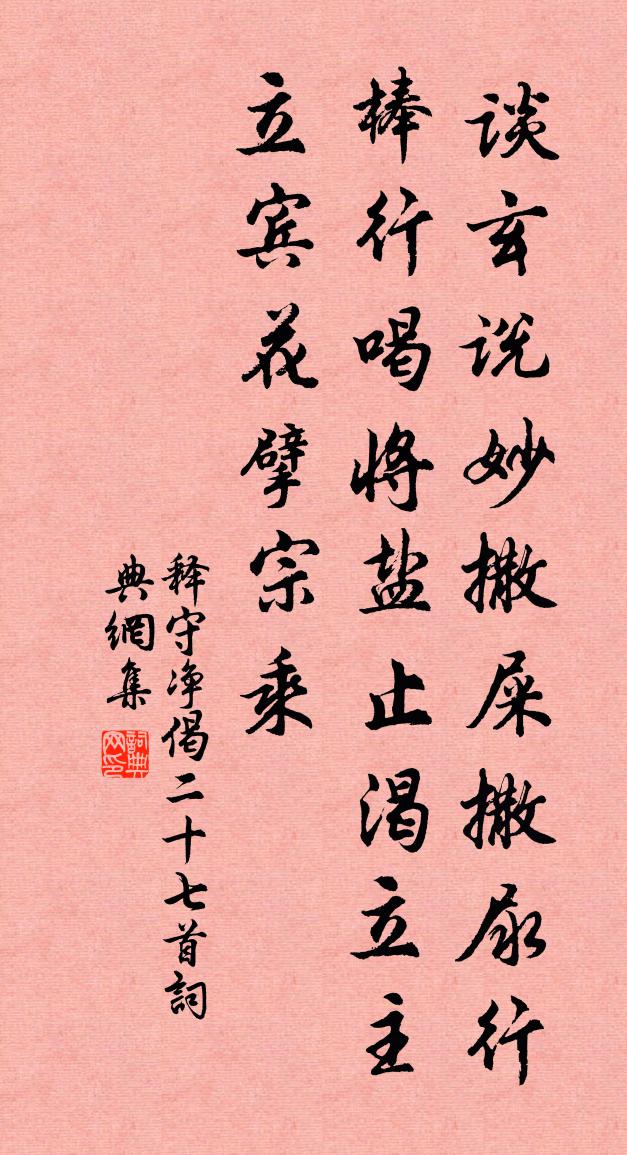 谈玄说妙撒屎撒尿行
棒行喝将盐止渴立主
立宾花擘宗乘
释守净偈二十七首詞
典網集
詞典
网印